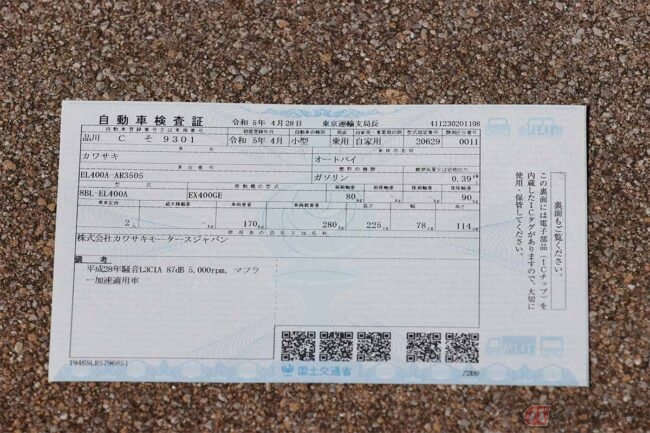 自動車検査証 令和 5年 4月28日 東京運輸支局長 411230201108
自動車登録番号又は車両番号 初度登録年月 自動車の種別 用途 自家用・事業用の別 型式指定番号 類別区分番号
品川 C そ 9301 令和 5年 4月 小型 乗用 自家用 20629 0011
車名 車体の形状
カワサキ オートバイ
車台番号 燃料の種類 総排気量又は定格出力
EL400A-AR3505 ガソリン 0.39
型式 原動機の型式 前前軸重 前後軸重 後前軸重 後後軸重
8BL-EL400A EX400GE 80 kg - kg - kg 90 kg
乗車定員 最大積載量 車両重量 車両総重量 長さ 幅 高さ
2人 - kg 170 kg 280 kg 225 cm 78 cm 114 cm
使用者の氏名又は名称
株式会社カワサキモータースジャパン
備考
平成28年騒音L3C1A 87dB 5,000rpm, マフラ
ー加速適用車
国土交通省
1946SLR5796851
7200
裏面もご覧ください。
この裏面には電子部品（ICチップ）を
内蔵したICタグがありますので、大切に
使用・保管してください。